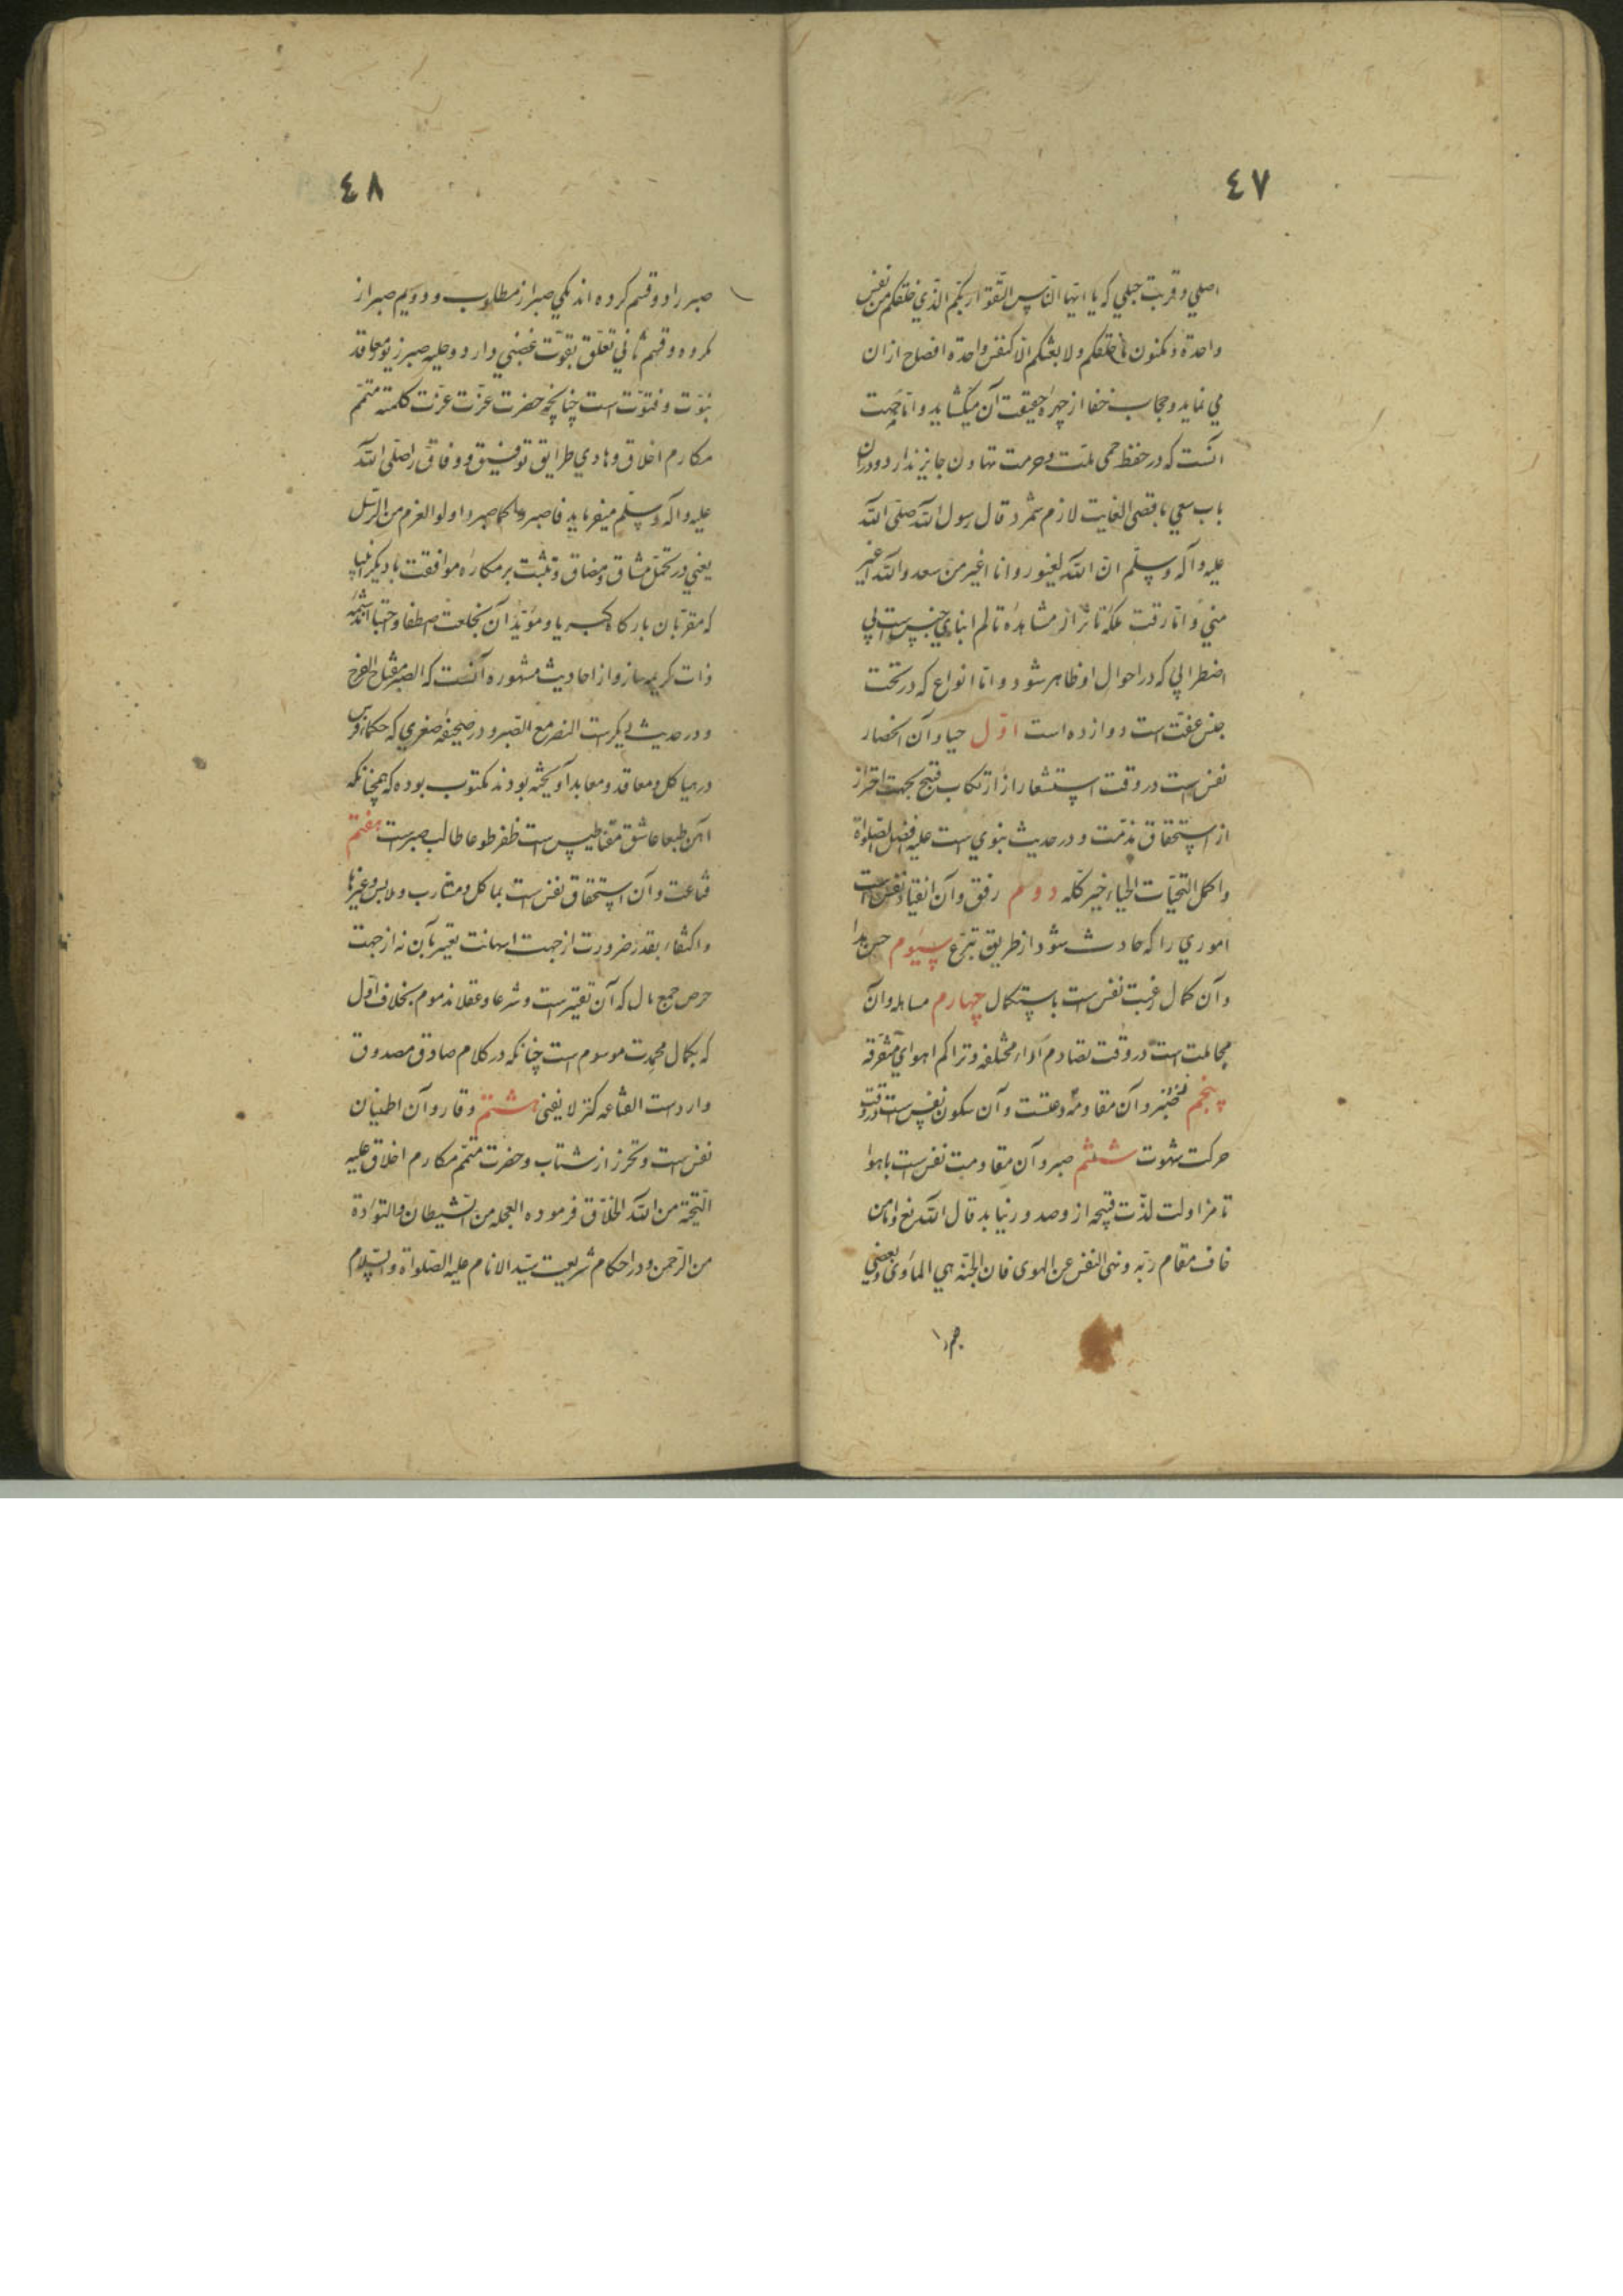 ٤٧
اصلي و قربت جبلي كه يا ايها الناس اتقوا ربكم الذي خلقكم من نفس
واحدة و مكنون ما خلقكم ولا بعثكم الا كنفس واحدة افصاح ازان
مي نمايد و حجاب خفا از چهرهٔ حقيقت آن ميكشايد و اما حميت
آنست كه در حفظ حمى ملت و حرمت تهاون جايز ندارد و دران
باب سعي باقصى الغايت لازم شمرد قال رسول الله صلى الله
عليه و آله و سلم ان الله لغيور و انا اغير من سعد و الله اغير
مني و اما رقت ملكهٔ تاثر از مشاهدهٔ تالم ابناي جنس است بي
اضطرابي كه در احوال او ظاهر شود و اما انواع كه در تحت
جنس عفت است دوازده است اول حيا و آن انحصار
نفس است در وقت استشعار از ارتكاب قبيح بجهت احتراز
از استحقاق مذمت و در حديث نبوي است عليه افضل الصلواة
و اكمل التحيات الحياء خير كله دوم رفق و آن انقياد نفس است
اموري را كه حادث شود از طريق تبرع سيوم حسن هدا
و آن كمال رغبت نفس است باستكمال چهارم مساهله و آن
مجاملت است در وقت تصادم آراء مختلفه و تراكم اهواي متفرقه
پنجم و آن سكون نفس است در وقت
حركت شهوت ششم صبر و آن مقاومت نفس است با هوا
تا مزاولت لذت قبيحه از و صدور نيابد قال الله تع و اما من
خاف مقام ربه و نهى النفس عن الهوى فان الجنة هي المأوى و بعضي
٤٨
صبر را دو قسم كرده اند يكي صبر از مطلوب و دويم صبر از
مكروه و قسم ثاني تعلق بقوت غضبي دارد و حليه صبر زيور معاقد
نبوت و فتوت است چنانچه حضرت عزت عزت كلمته متمم
مكارم اخلاق و هادي طرايق توفيق و وفاق را صلى الله
عليه و آله و سلم ميفرمايد فاصبر كما صبر اولو العزم من الرسل
يعني در تحمل مشاق و مضاق و تثبت بر مكاره موافقت با ديگر انبيا
كه مقربان باركاه كبريا و مؤيدان بخلعت اصطفا و اجتبا اند شيمهٔ
ذات كريم ساز و از احاديث مشهوره آنست كه الصبر مفتاح الفرج
و در حديث ديكر است النصر مع الصبر و در صحيفهٔ صغري كه حكماء فرس
در هياكل و معاقد و معابد آويخته بودند مكتوب بوده كه همچنانكه
آهن طبعا عاشق مقناطيس است ظفر طوعا طالب صبر است هفتم
قناعت و آن استحقاق نفس است بماكل و مشارب و ملابس و غيرها
و اكتفاء بقدر ضرورت از جهت استهانت بآن نه از جهت
حرص جمع مال كه آن تقتير است و شرعا و عقلا مذموم بخلاف اول
كه بكمال محمدت موسوم است چنانكه در كلام صادق مصدوق
وارد ست القناعه كنز لا يفنى هشتم وقار و آن اطمينان
نفس است و تحرز از شتاب و حضرت متمم مكارم اخلاق عليه
التحية من الله الخلاق فرموده العجله من الشيطان و التؤدة
من الرحمن و در احكام شريعت سيد الانام عليه الصلواة و السلام